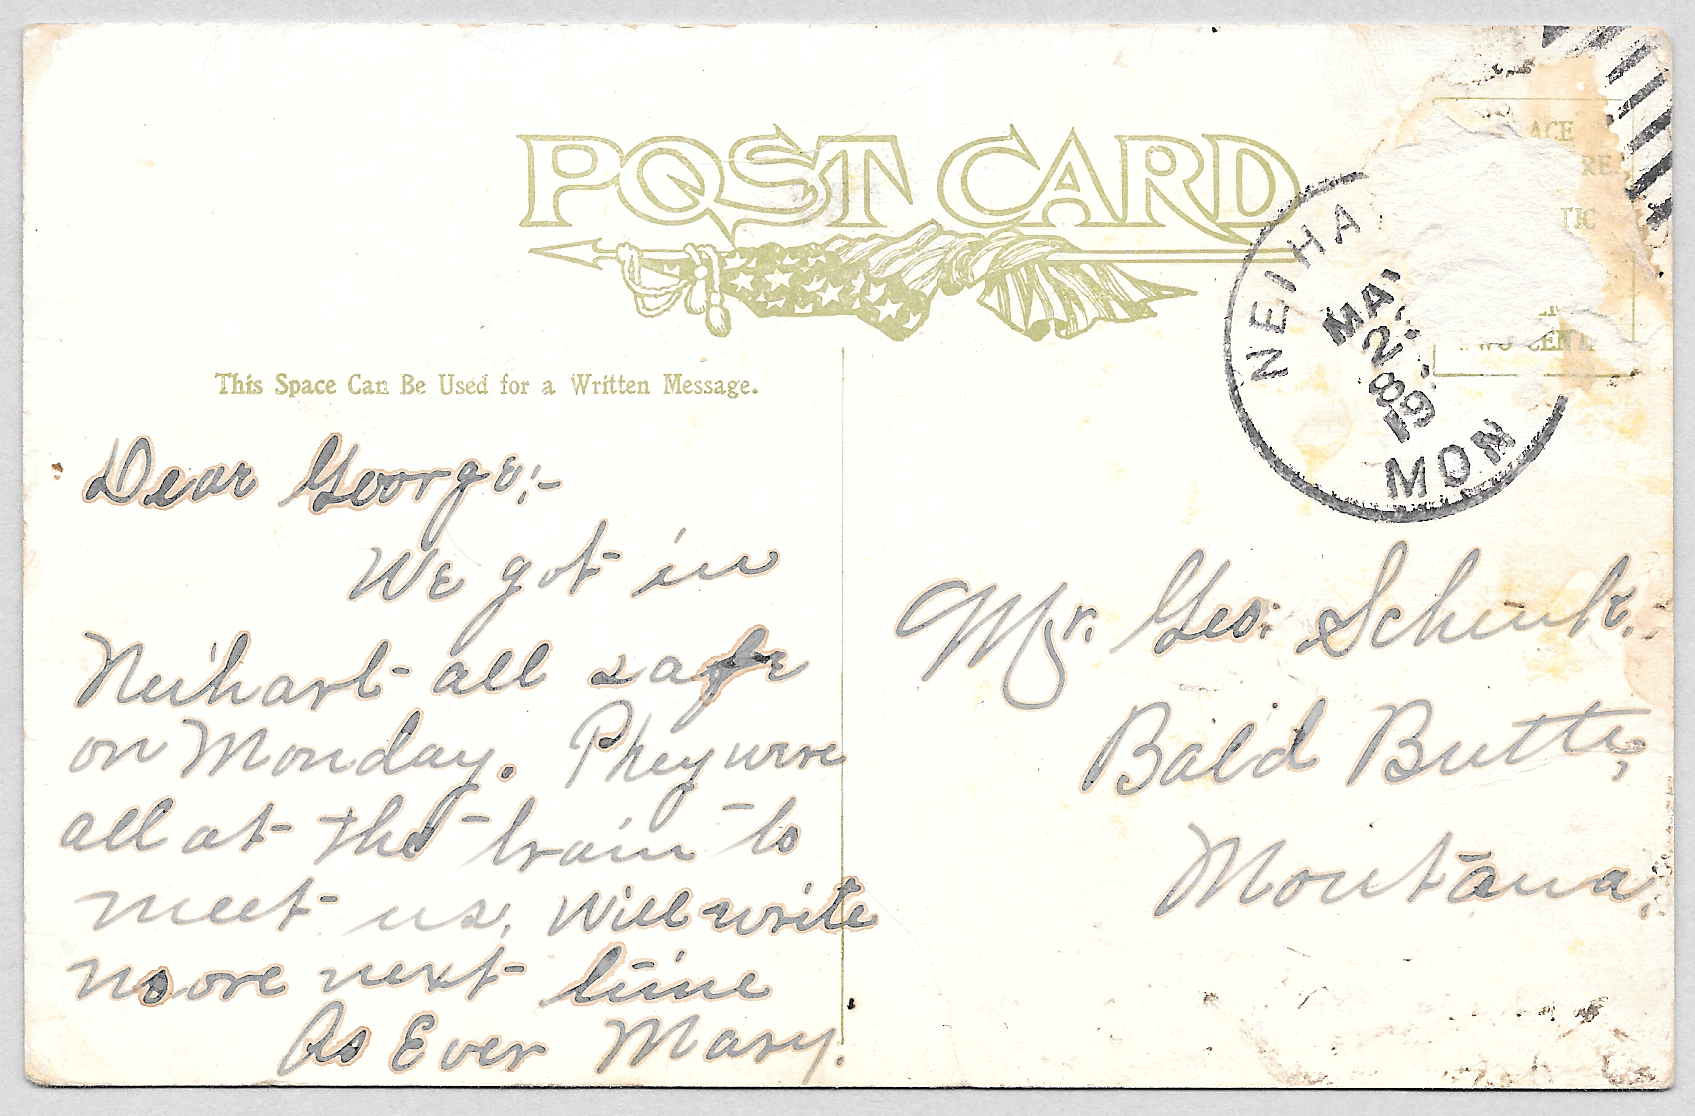 POST CARD
This Space Can Be Used for a Written Message.
Dear George:-
We got in
Neihart all safe
on Monday. They were
all at the train to
meet us. Will write
more next time
As Ever Mary.
NEIHA
MA
28
19
MON
ACE
RE
TIC
CENT
Mr. Geo. Schultz.
Bald Butte,
Montana.